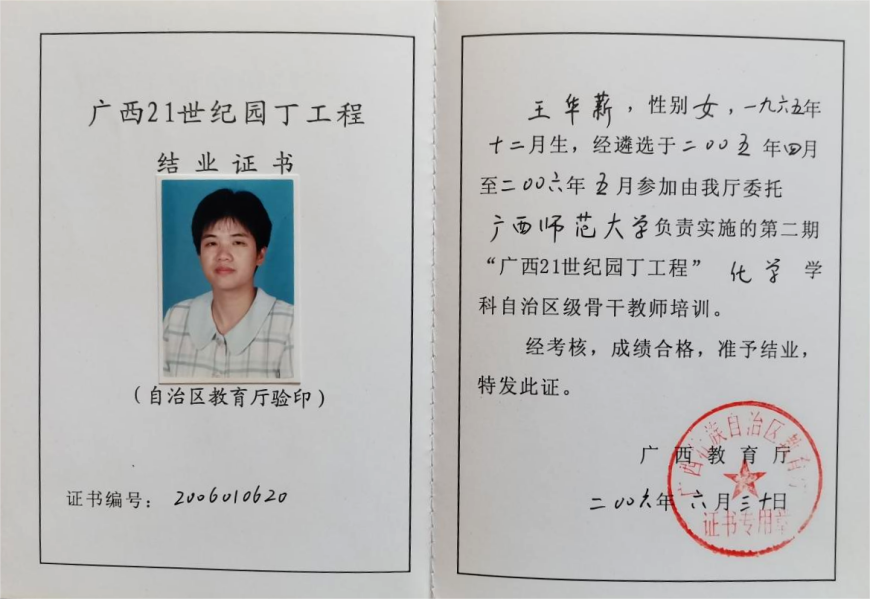 广西21世纪园丁工程
结业证书
（自治区教育厅验印）
证书编号：2006010620
王华薪，性别女，一九六五年
十二月生，经遴选于二00五年四月
至二00六年五月参加由我厅委托
广西师范大学负责实施的第二期
“广西21世纪园丁工程”化学学
科自治区级骨干教师培训。
经考核，成绩合格，准予结业，
特发此证。
广西教育厅
二00六年六月三十日
广西壮族自治区教育厅
证书专用章